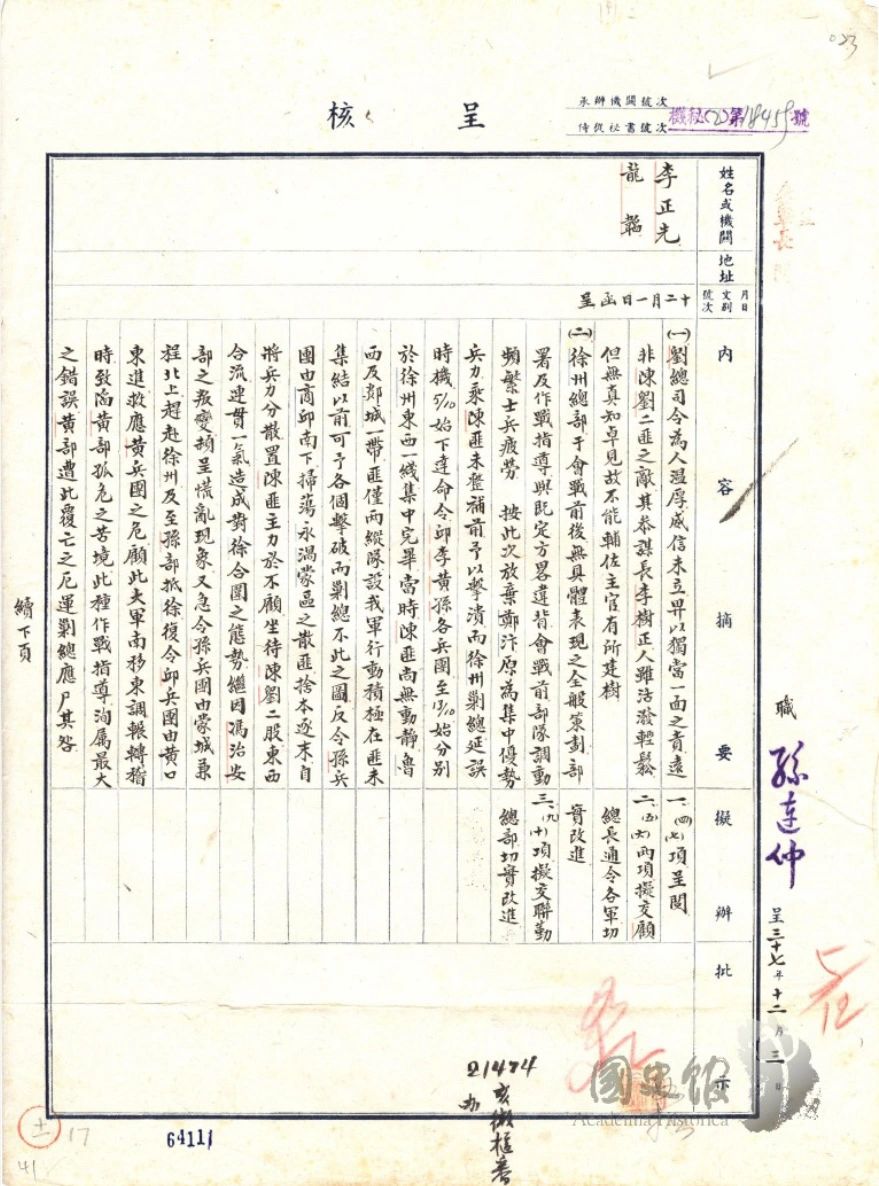 023
呈核
承辦機關號次
侍從秘書號次
機秘(乙)第18459號
姓名或機關
地址
月日
文別
號次
內容摘要
擬辦
批示
李正先
龍韜
十二月一日函呈
㈠劉總司令為人溫厚威信未立畀以獨當一面之責遠
非陳劉二匪之敵其參謀長李樹正人雖活潑輕鬆
但無真知卓見故不能輔佐主官有所建樹
㈡徐州總部于會戰前後無具體表現之全般策劃部
署及作戰指導與既定方畧違背會戰前部隊調動
頻繁士兵疲勞 按此次放棄鄭汴原為集中優勢
兵力乘陳匪未整補前予以擊潰而徐州剿總延誤
時機5/10始下達命令邱李黃孫各兵團至13/10始分別
於徐州東西一綫集中完畢當時陳匪尚無動靜魯
西及郯城一帶匪僅兩縱隊設我軍行動積極在匪未
集結以前可予各個擊破而剿總不此之圖反令孫兵
團由商邱南下掃蕩永渦蒙區之散匪捨本逐末自
將兵力分散置陳匪主力於不顧坐待陳劉二股東西
合流連貫一氣造成對徐合圍之態勢繼因馮治安
部之叛變頓呈慌亂現象又急令孫兵團由蒙城兼
程北上趕赴徐州及至孫部抵徐復令邱兵團由黃口
東進救應黃兵團之危顧此大軍南移東調輾轉稽
時致陷黃部孤危之苦境此種作戰指導洵屬最大
之錯誤黃部遭此覆亡之厄運剿總應尸其咎
續下頁
一、㈣㈦項呈閱
二、㈤㈥兩項擬交顧
總長通令各軍切
實改進
三、㈨㈩項擬交聯勤
總部切實改進
職 孫連仲 呈三十七年十二月三日
5/12
21474
國史館
Academia Historica
64111
17
41